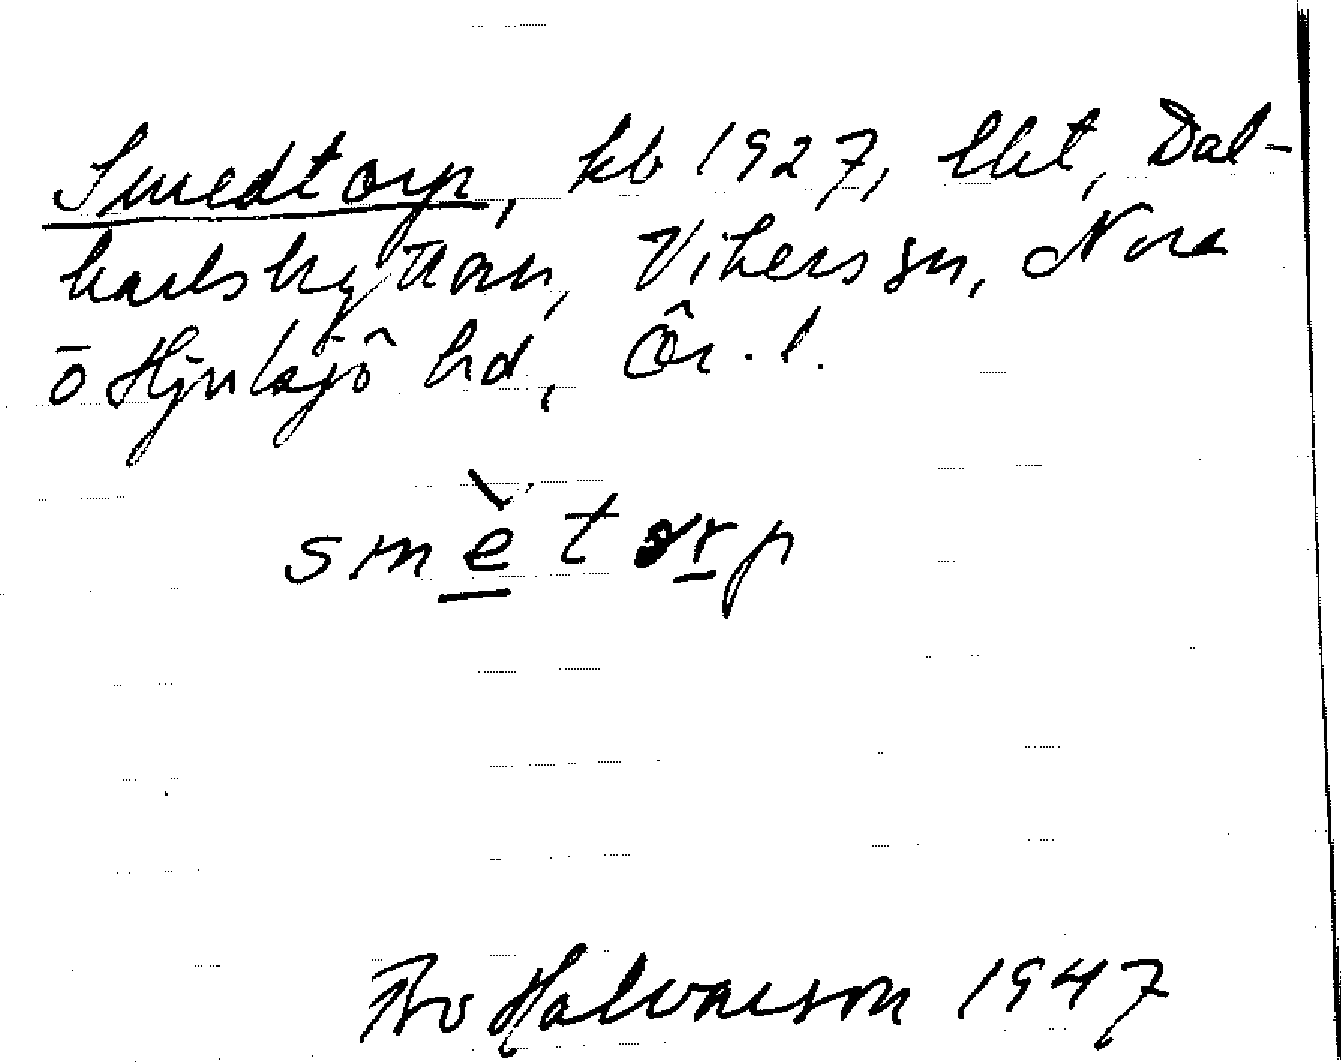 Smedtorp, kb 1927, lht, Dal-
karlshyttan, Vikers sn, Nora
o Hjulsjö hd, Ör. l.
smètorp
Halvarson 1947